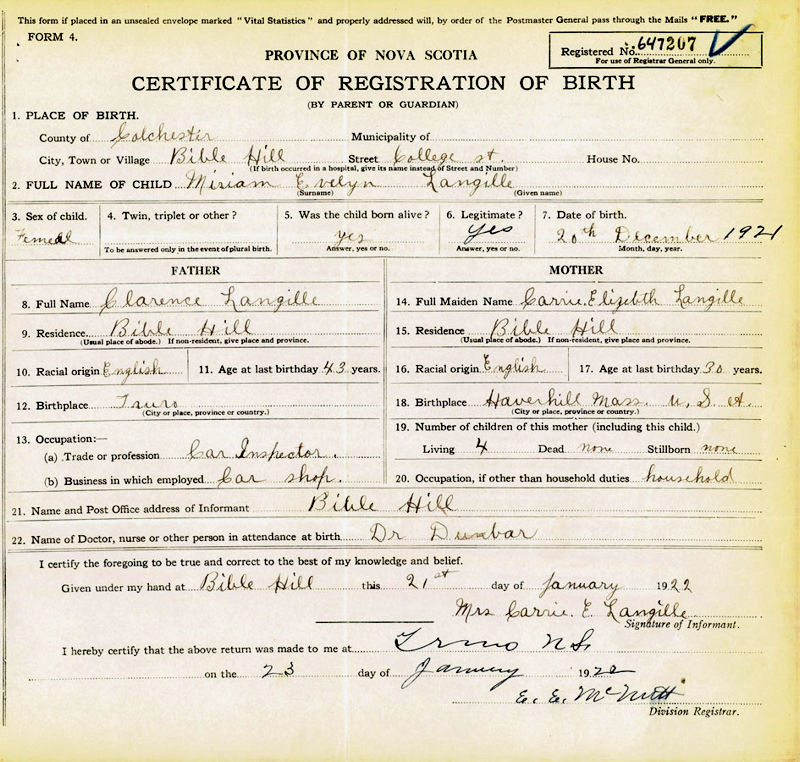 This form if placed in an unsealed envelope marked "Vital Statistics" and properly addressed will, by order of the Postmaster General pass through the Mails "FREE."
FORM 4.
Registered No. 647207
For use of Registrar General only.
PROVINCE OF NOVA SCOTIA
CERTIFICATE OF REGISTRATION OF BIRTH
(BY PARENT OR GUARDIAN)
1. PLACE OF BIRTH.
County of Colchester Municipality of
City, Town or Village Bible Hill Street College st. House No.
(If birth occurred in a hospital, give its name instead of Street and Number)
2. FULL NAME OF CHILD Miriam Evelyn Langille
(Surname) (Given name)
3. Sex of child. 4. Twin, triplet or other? 5. Was the child born alive? 6. Legitimate? 7. Date of birth.
Femeal yes yes 20th December 1921
To be answered only in the event of plural birth. Answer, yes or no. Answer, yes or no. Month, day, year.
FATHER MOTHER
8. Full Name Clarence Langille 14. Full Maiden Name Carrie. Elizebth Langille
9. Residence Bible Hill 15. Residence Bible Hill
(Usual place of abode.) If non-resident, give place and province. (Usual place of abode.) If non-resident, give place and province.
10. Racial origin English 11. Age at last birthday 43 years. 16. Racial origin English 17. Age at last birthday 30 years.
12. Birthplace Truro 18. Birthplace Haverhill Mass. U. S. A.
(City or place, province or country.) (City or place, province or country.)
13. Occupation:— 19. Number of children of this mother (including this child.)
(a) Trade or profession Car Inspector. Living 4 Dead none Stillborn none
(b) Business in which employed Car shop. 20. Occupation, if other than household duties household
21. Name and Post Office address of Informant Bible Hill
22. Name of Doctor, nurse or other person in attendance at birth Dr Dunbar
I certify the foregoing to be true and correct to the best of my knowledge and belief.
Given under my hand at Bible Hill this 21st day of January 1922
Mrs Carrie. E. Langille
Signature of Informant.
I hereby certify that the above return was made to me at Truro N.S.
on the 23 day of January 1922
E. E. McNutt
Division Registrar.